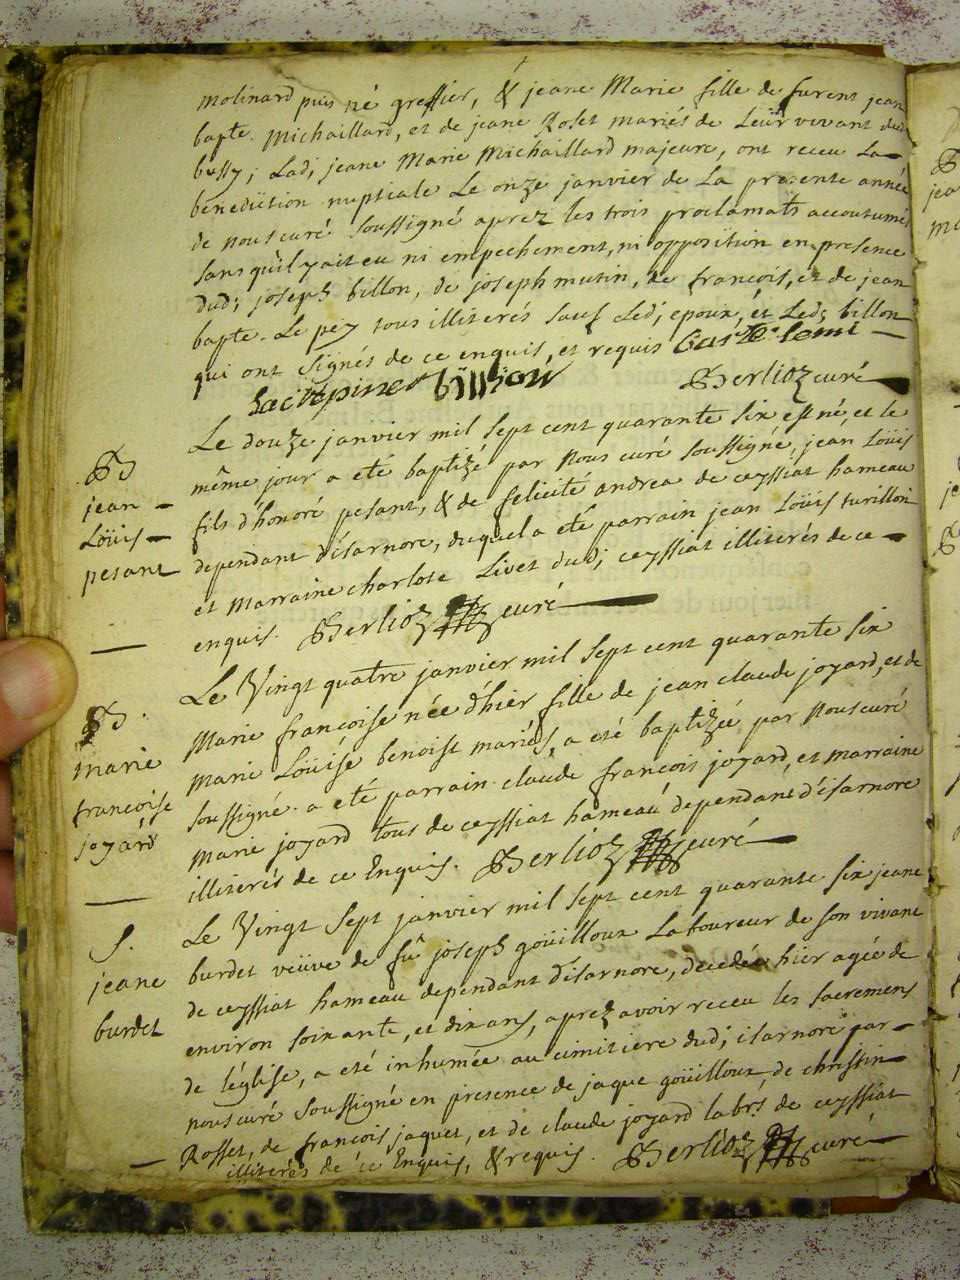 molinard puis né greffier, & jeane Marie fille de furent jean
bapte. Michaillard, et de jeane Roset mariés de Leur vivant dud;
bussy; Lad; jeane Marie Michaillard majeure, ont receu La
benediction nuptiale Le onze janvier de La presente année
de nous curé soussigné aprez les trois proclamats accoutumés
sans qu'il y ait eu ni empechement, ni opposition en presence
dud; joseph billon, de joseph mutin, de françois, et de jean
bapte. Le pey tous illiterés sauf Led; epoux, et Led; billon
qui ont signés de ce enquis, et requis
billion Berlioz curé
Le douze janvier mil sept cent quarante six est né, et le
même jour a eté baptizé par Nous curé soussigné, jean Loüis
fils d'honoré pesant, & de felicité andrea de ceyssiat hameau
dependant d'isarnore, duquel a eté parrain jean Loüis turillon
et Marraine charlote Livet dud; ceyssiat illiterés de ce
enquis. Berlioz curé
B
jean
Loüis
pesant
Le Vingt quatre janvier mil sept cent quarante six
Marie francoise née d'hier fille de jean claude joyard, et de
Marie Loüise benoist mariés, a eté baptizée par Nous curé
soussigné. a eté parrain claude françois joyard, et marraine
Marie joyard tous de ceyssiat hameau dependant d'isarnore
illiterés de ce Enquis. Berlioz curé
B.
marie
francoise
joyard
Le Vingt sept janvier mil sept cent quarante six jeane
burdet veüve de fû joseph goüilloux Laboureur de son vivant
de ceyssiat hameau dependant d'isarnore, decedée hier agée de
environ soixante, et dix ans, aprez avoir receu les sacremens
de l'église, a eté inhumée au cimitiere dud; isarnore par
nous curé soussigné en presence de jaque goüilloux, de christin
Rosset, de françois jaquet, et de claude joyard labrs. de ceyssiat
illiterés de ce Enquis, & requis. Berlioz curé
S.
jeane
burdet